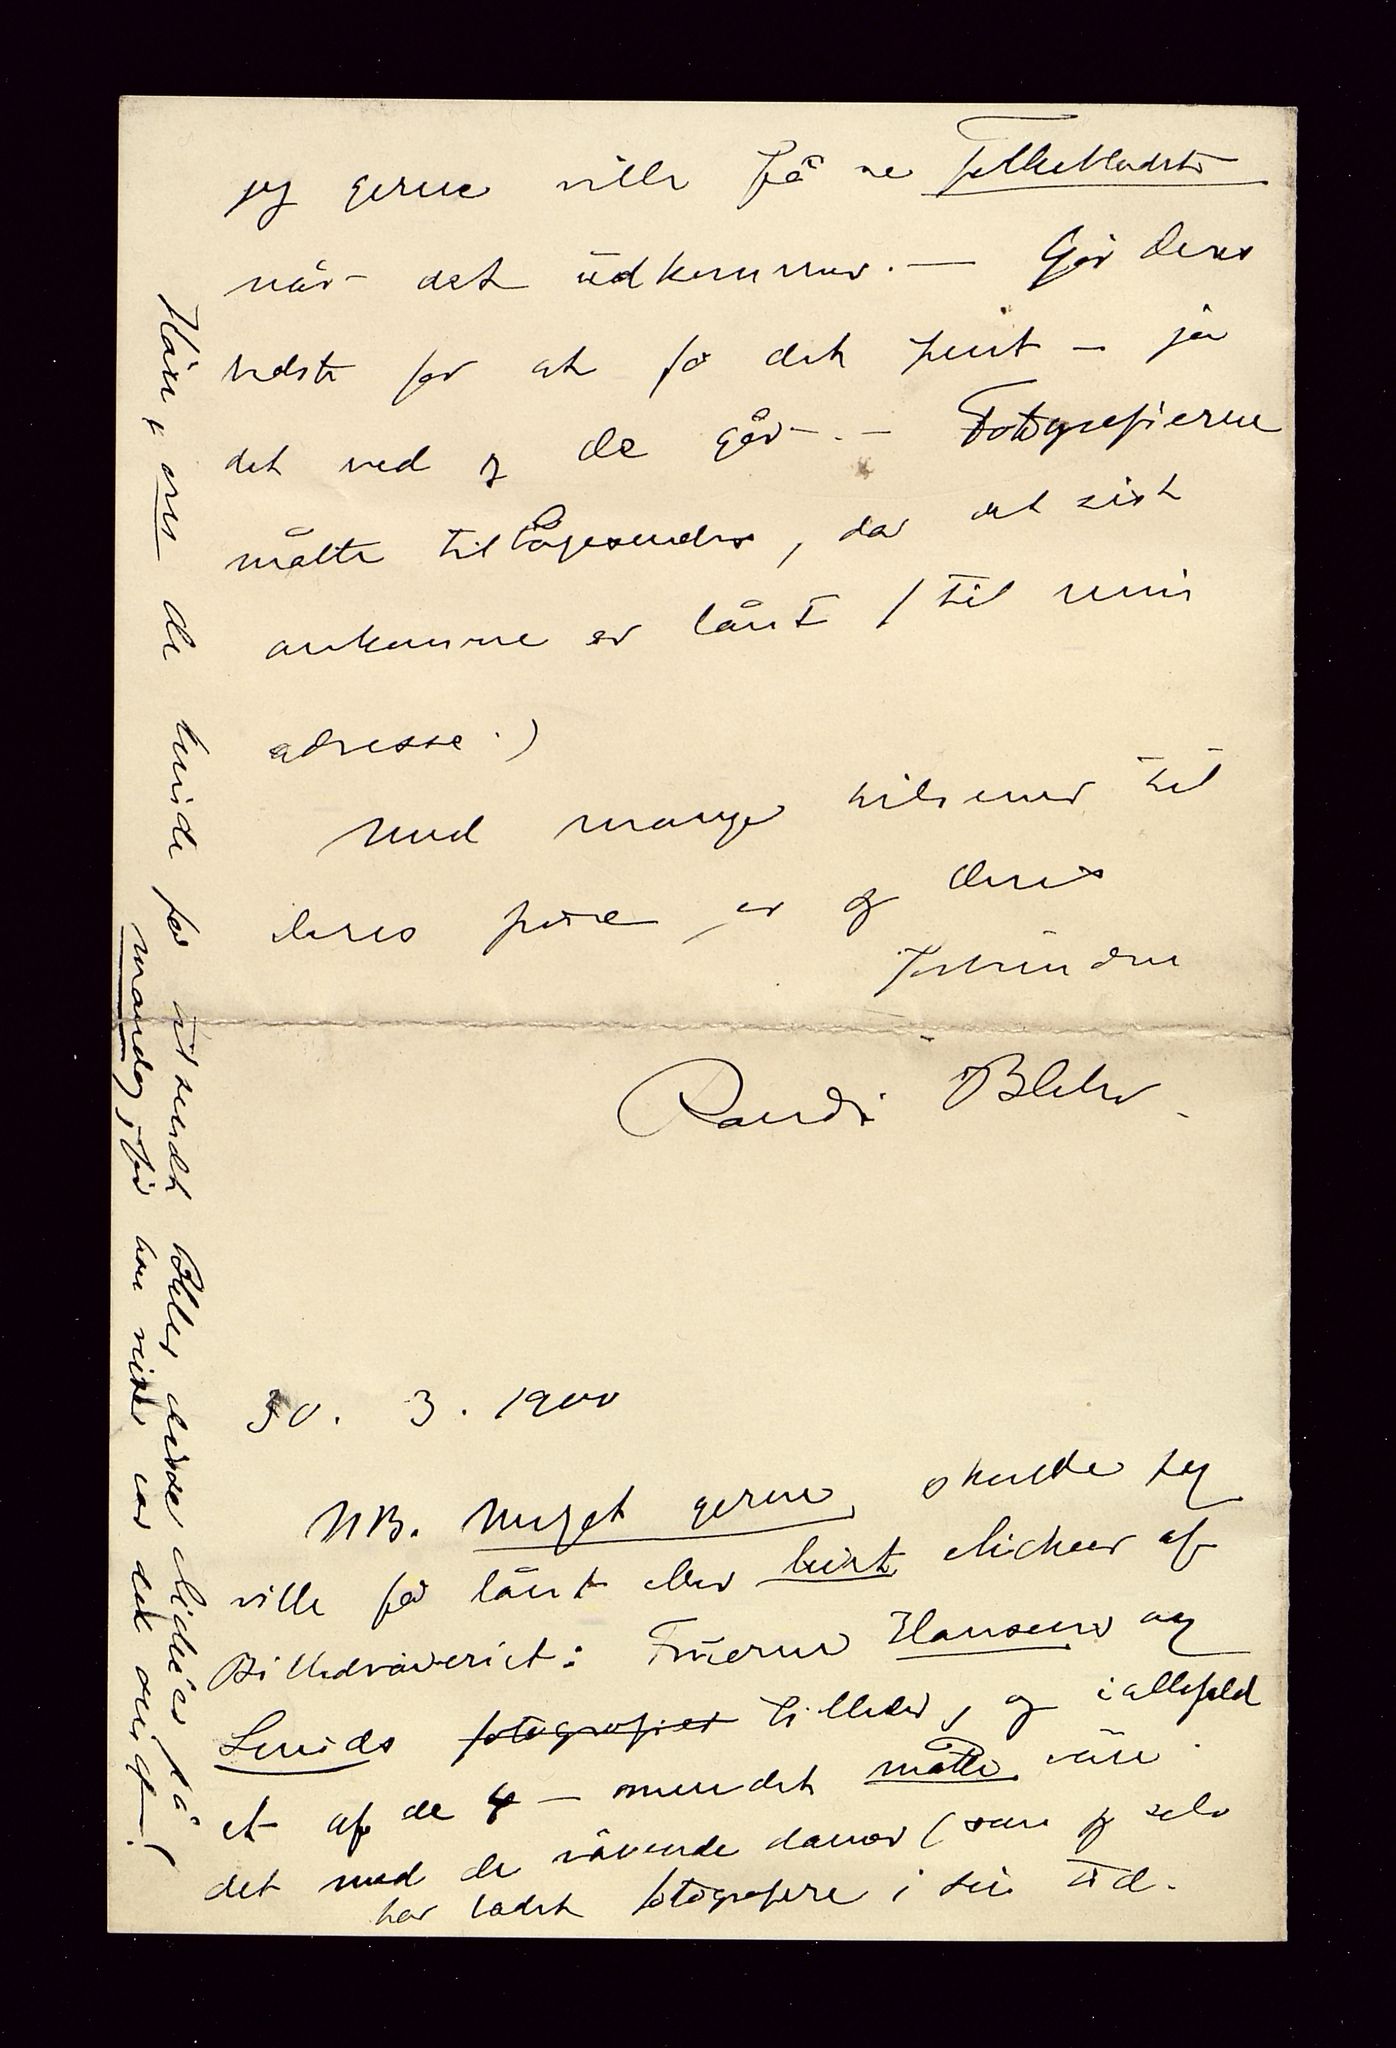 jeg gerne ville få se Folkebladet
når det udkommer. — Gør Deres
bedste for at få det pent — ja
det ved jeg De gør. — Fotografierne
måtte tilbagesendes, da det sist
ankomne er lånt (til min
adresse.)
Med mange hilsener til
deres frue er jeg deres
forbundne
Randi Blehr.
30. 3. 1900
NB. Meget gerne skulde jeg
ville få lånt eller leiet clicheer af
Billedvæveriet: Fruerne Hansens og
Lunds fotografier billeder, og i allefald
et af de 4 — men det måtte være
det med de vævende damer (som jeg selv
har ladet fotografere i sin tid.
Hør, om de kunde få tilsendt Eller disse clicheer på
mandag, få han vite var det deiligt!